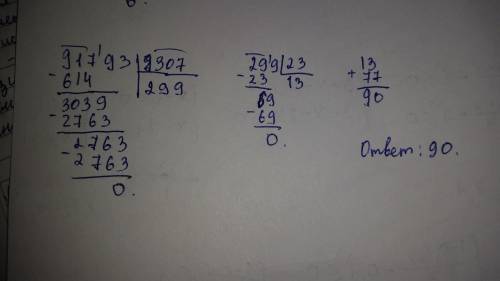 91793 9307
- 614 299
3039
- 2763
2763
- 2763
0.
299 23
- 23 13
69
- 69
0.
13
+ 77
90
Ответ: 90.